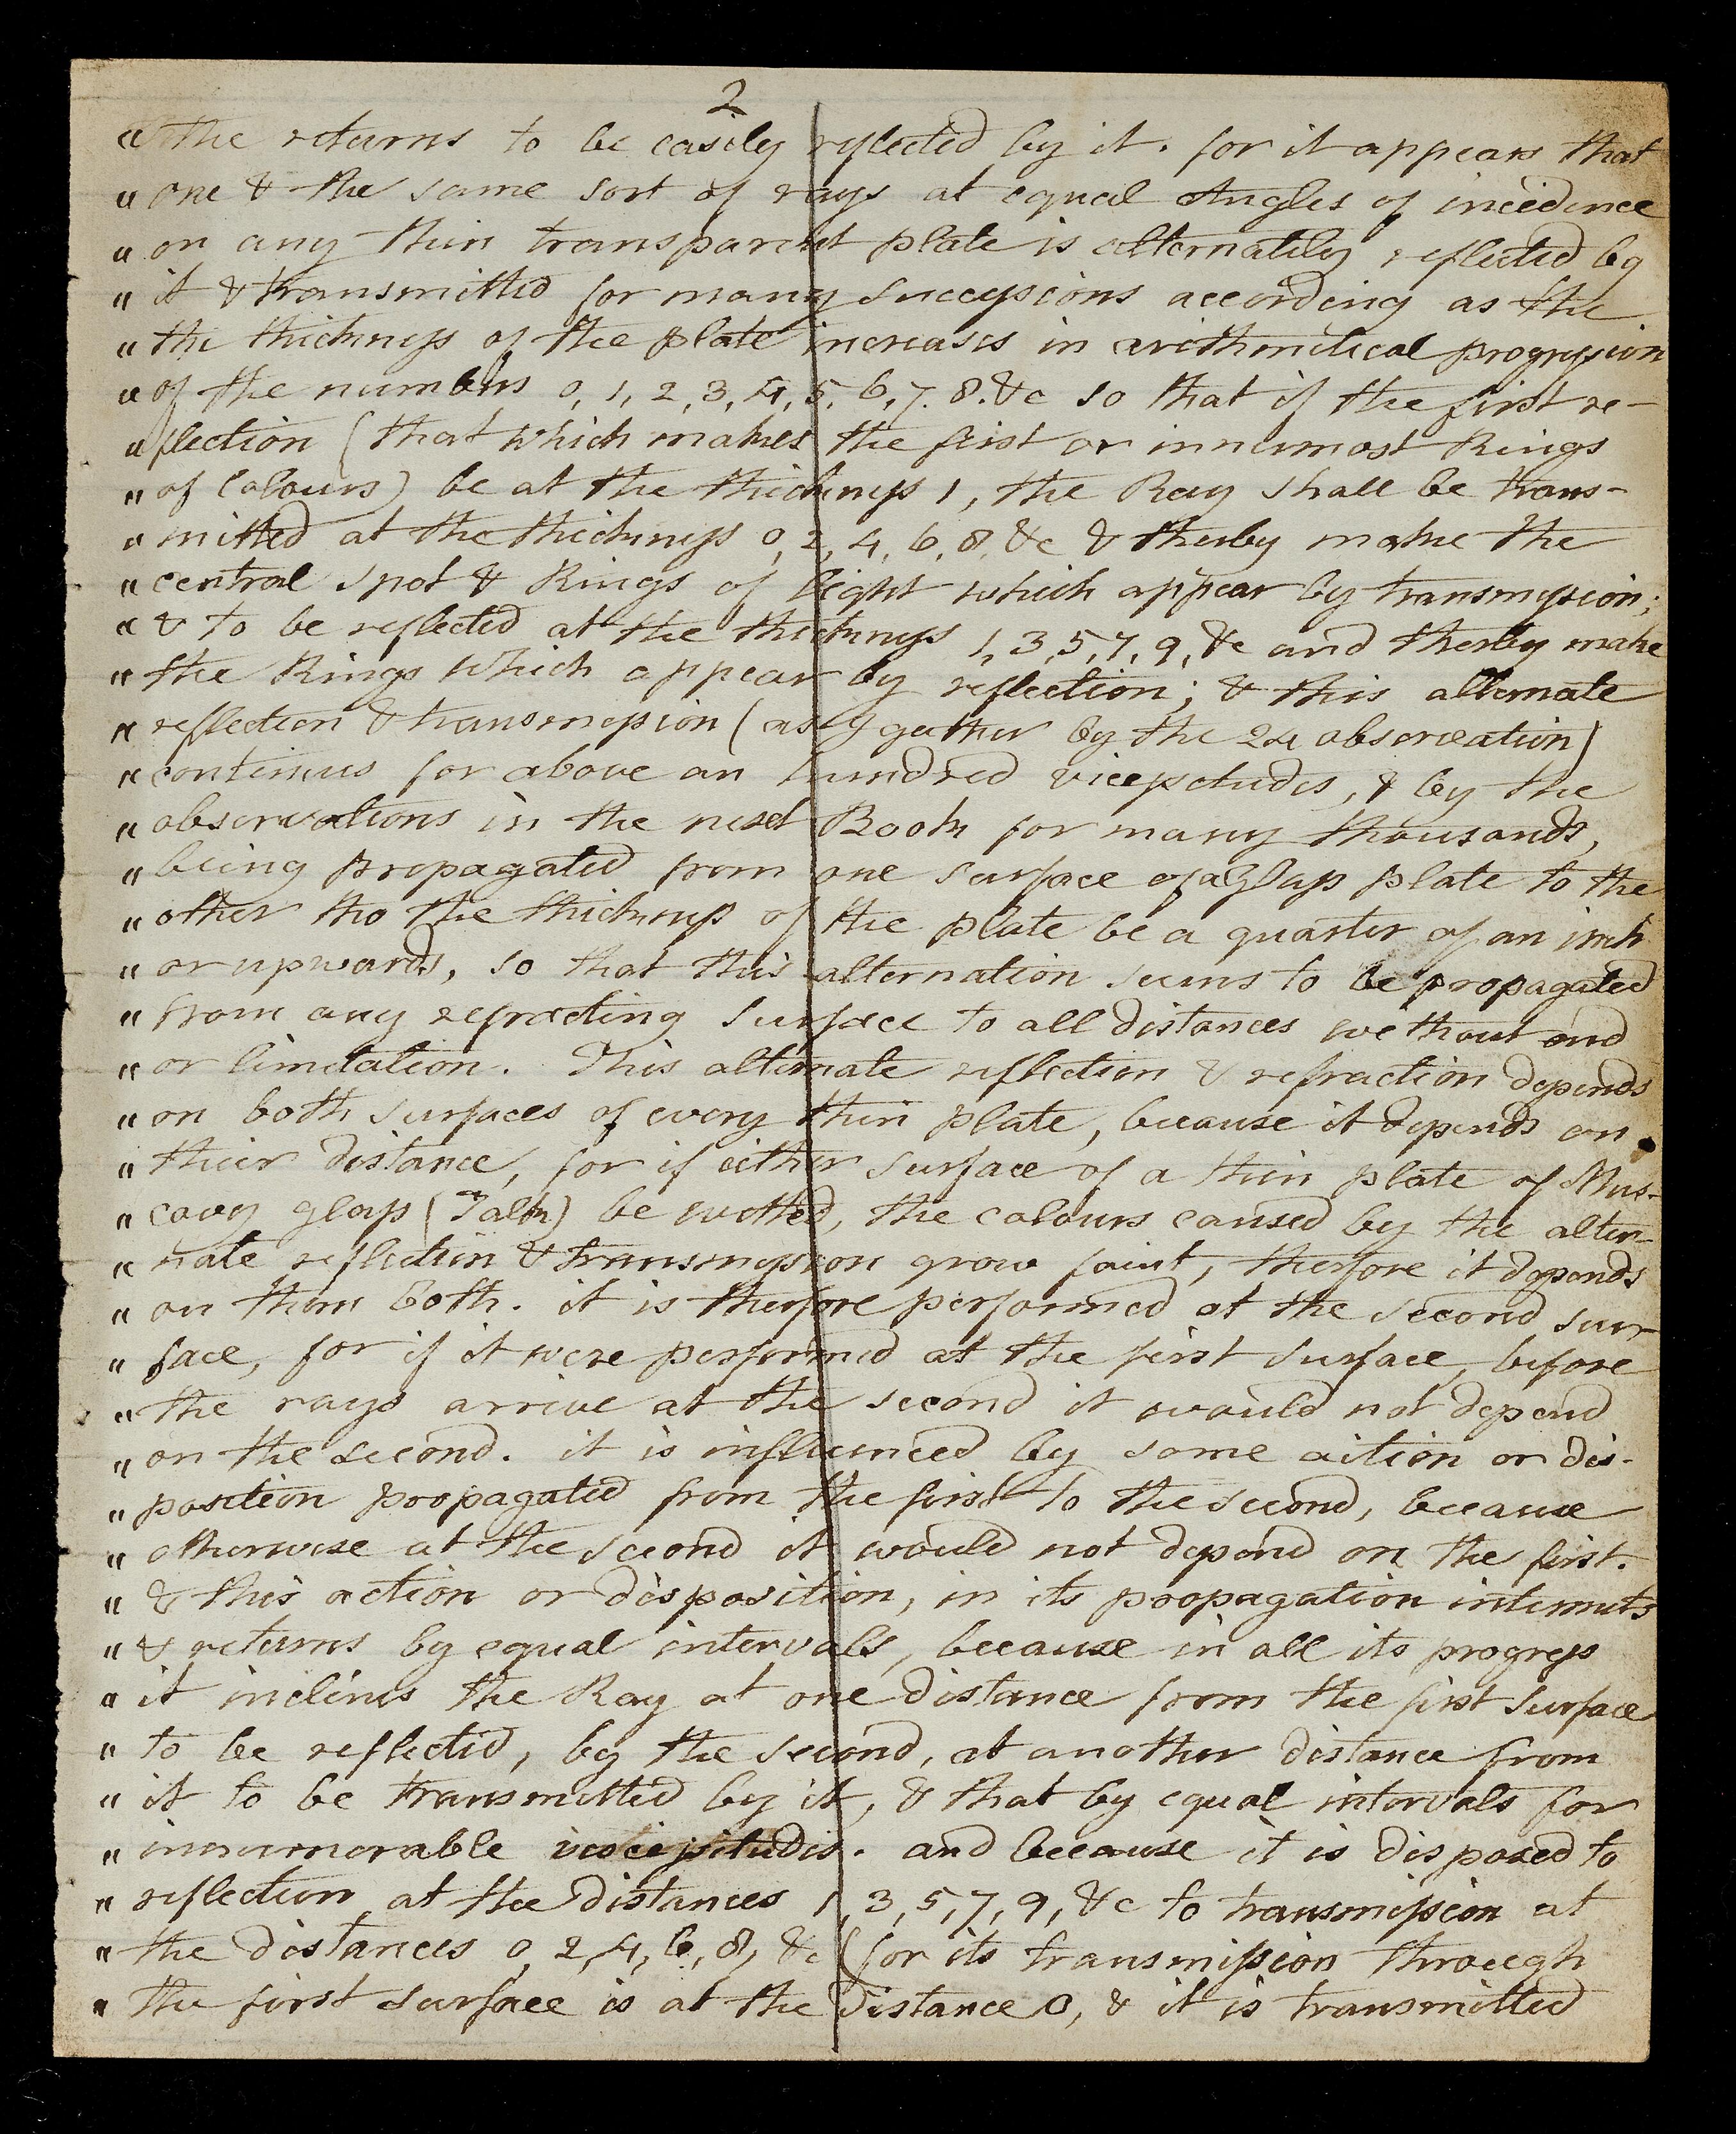 2
" the returns to be easily reflected by it. for it appears that
" one & the same sort of rays at equal Angles of incidence
" on any thin transparent plate is alternately reflected by
" it & transmitted for many successions according as the
" the thickness of the plate increases in arithmetical progression
" of the numbers 0, 1, 2, 3, 4, 5, 6, 7. 8. &c so that if the first re-
" flection (that which makes the first or innermost Rings
" of Colours) be at the thickness 1, the Ray shall be trans-
" mitted at the thickness 0, 2, 4, 6, 8, &c & therby make the
" central spot & Rings of light which appear by transmission;
" & to be reflected at the thickness 1, 3, 5, 7, 9, &c and therby make
" the Rings which appear by reflection; & this alternate
" reflection & transmission (as I gather by the 24 observation)
" continues for above an hundred vicessetudes, & by the
" observations in the next Book for many thousands,
" being propagated from one surface of a Glass plate to the
" other tho the thickness of the plate be a quarter of an inch
" or upwards, so that this alternation seems to be propagated
" from any refracting surface to all distances without end
" or limitation. This alternate reflection & refraction depends
" on both surfaces of every thin plate, because it depends on
" their distance, for if either surface of a thin plate of Mus-
" covy glass (Talk) be wetted, the colours caused by the alter-
" nate reflection & transmission grow faint, therfore it depends
" on them both. it is therfore performed at the second sur-
" face, for if it were performed at the first surface, before
" the rays arrive at the second it would not depend
" on the second. it is influenced by some action or dis-
" position propagated from the first to the second, because
" otherwise at the second it would not depend on the first.
" & this action or disposition, in its propagation intermits
" & returns by equal intervals, because in all its progress
" it inclines the Ray at one distance from the first surface
" to be reflected, by the second, at another distance from
" it to be transmitted by it, & that by equal intervals for
" innumerable vicissitudes. and because it is disposed to
" reflection at the distances 1, 3, 5, 7, 9, &c to transmission at
" the distances 0, 2, 4, 6, 8, &c (for its transmission through
" the first surface is at the distance 0, & it is transmitted